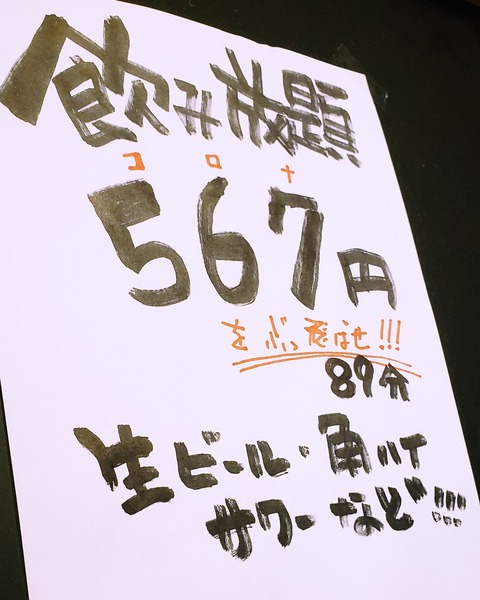 飲み放題
コロナ
567円
をぶっ飛ばせ!!!
89分
生ビール・角ハイ
サワーなど!!!